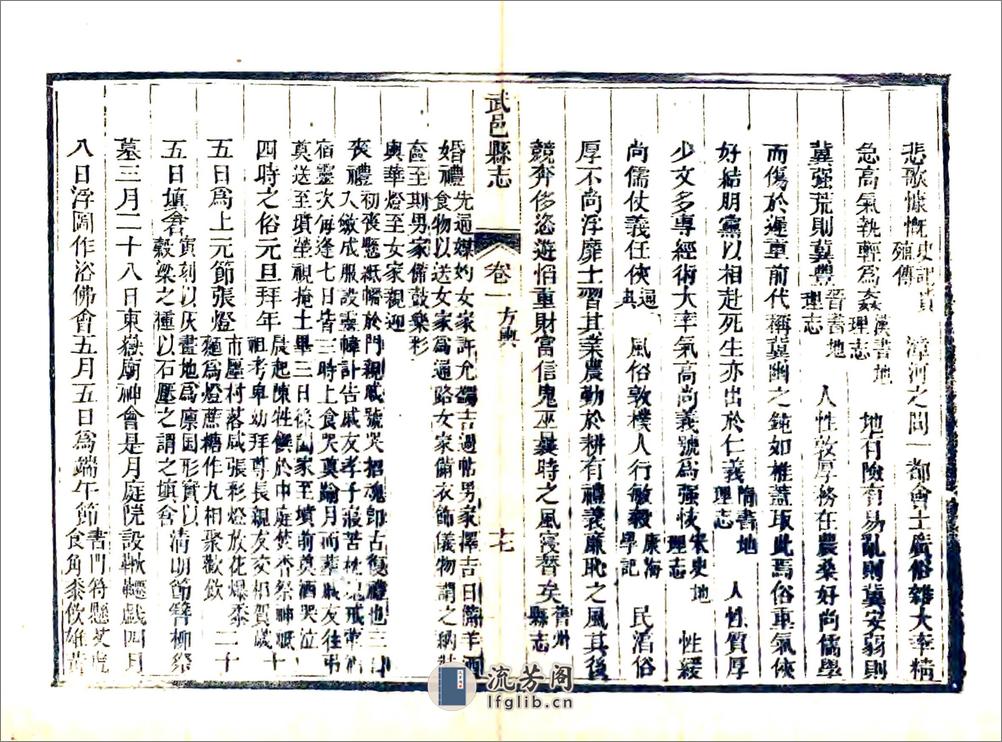 悲歌慷慨史記貨殖傳　漳河之間一都會土廣俗雜大率精
急高氣執輕爲姦漢書地理志　地有險有易亂則冀安弱則
冀强荒則冀豐晉書地理志　人性敦厚務在農桑好尚儒學
而傷於遲重前代稱冀幽之鈍如椎蓋取此焉俗重氣俠
好結朋黨以相赴死生亦出於仁義隋書地理志　人性質厚
少文多專經術大率氣高尚義號爲强忮宋史地理志　性緩
尚儒仗義任俠　風俗敦樸人行敏毅　學記　民淳俗
厚不尚浮靡士習其業農勤於耕有禮義廉恥之風其後
競奔侈恣遊怕重財富信鬼巫曩時之風寖替矣晉州縣志
武邑縣志　卷一　方輿　十七
婚禮先通媒妁女家許允蠲吉過帖男家擇吉日備羊酒
食物以送女家爲通路女家備衣飾儀物謂之納
奩至期男家備鼓樂彩
輿華燈至女家親迎
喪禮初喪懸紙幡於門親戚號哭招魂卽古復禮也三日
入斂成服設靈幃訃告戚友孝子寢苫枕塊戒葷酒
宿靈次每逢七日皆三時上食哭奠踰月而葬戚友往弔
奠送至墳塋視掩土畢三日後圓家至墳前奠酒哭泣
四時之俗元旦拜年晨起陳牲饌於中庭焚香祭神祇
祖考卑幼拜尊長親友交相賀歲十
五日爲上元節張燈市廛村落咸張彩燈放花爆黍
麵爲燈蔗糖作丸相聚歡飲二十
五日填倉寅刻以灰畫地爲廪囷形實以
穀粱之種以石壓之謂之填倉淸明節簪柳祭
墓三月二十八日東嶽廟神會是月庭院設鞦韆戲四月
八日浮圖作浴佛會五月五日爲端午節書門符懸艾虎
食角黍飲雄黃
流芳阁
lfglib.cn